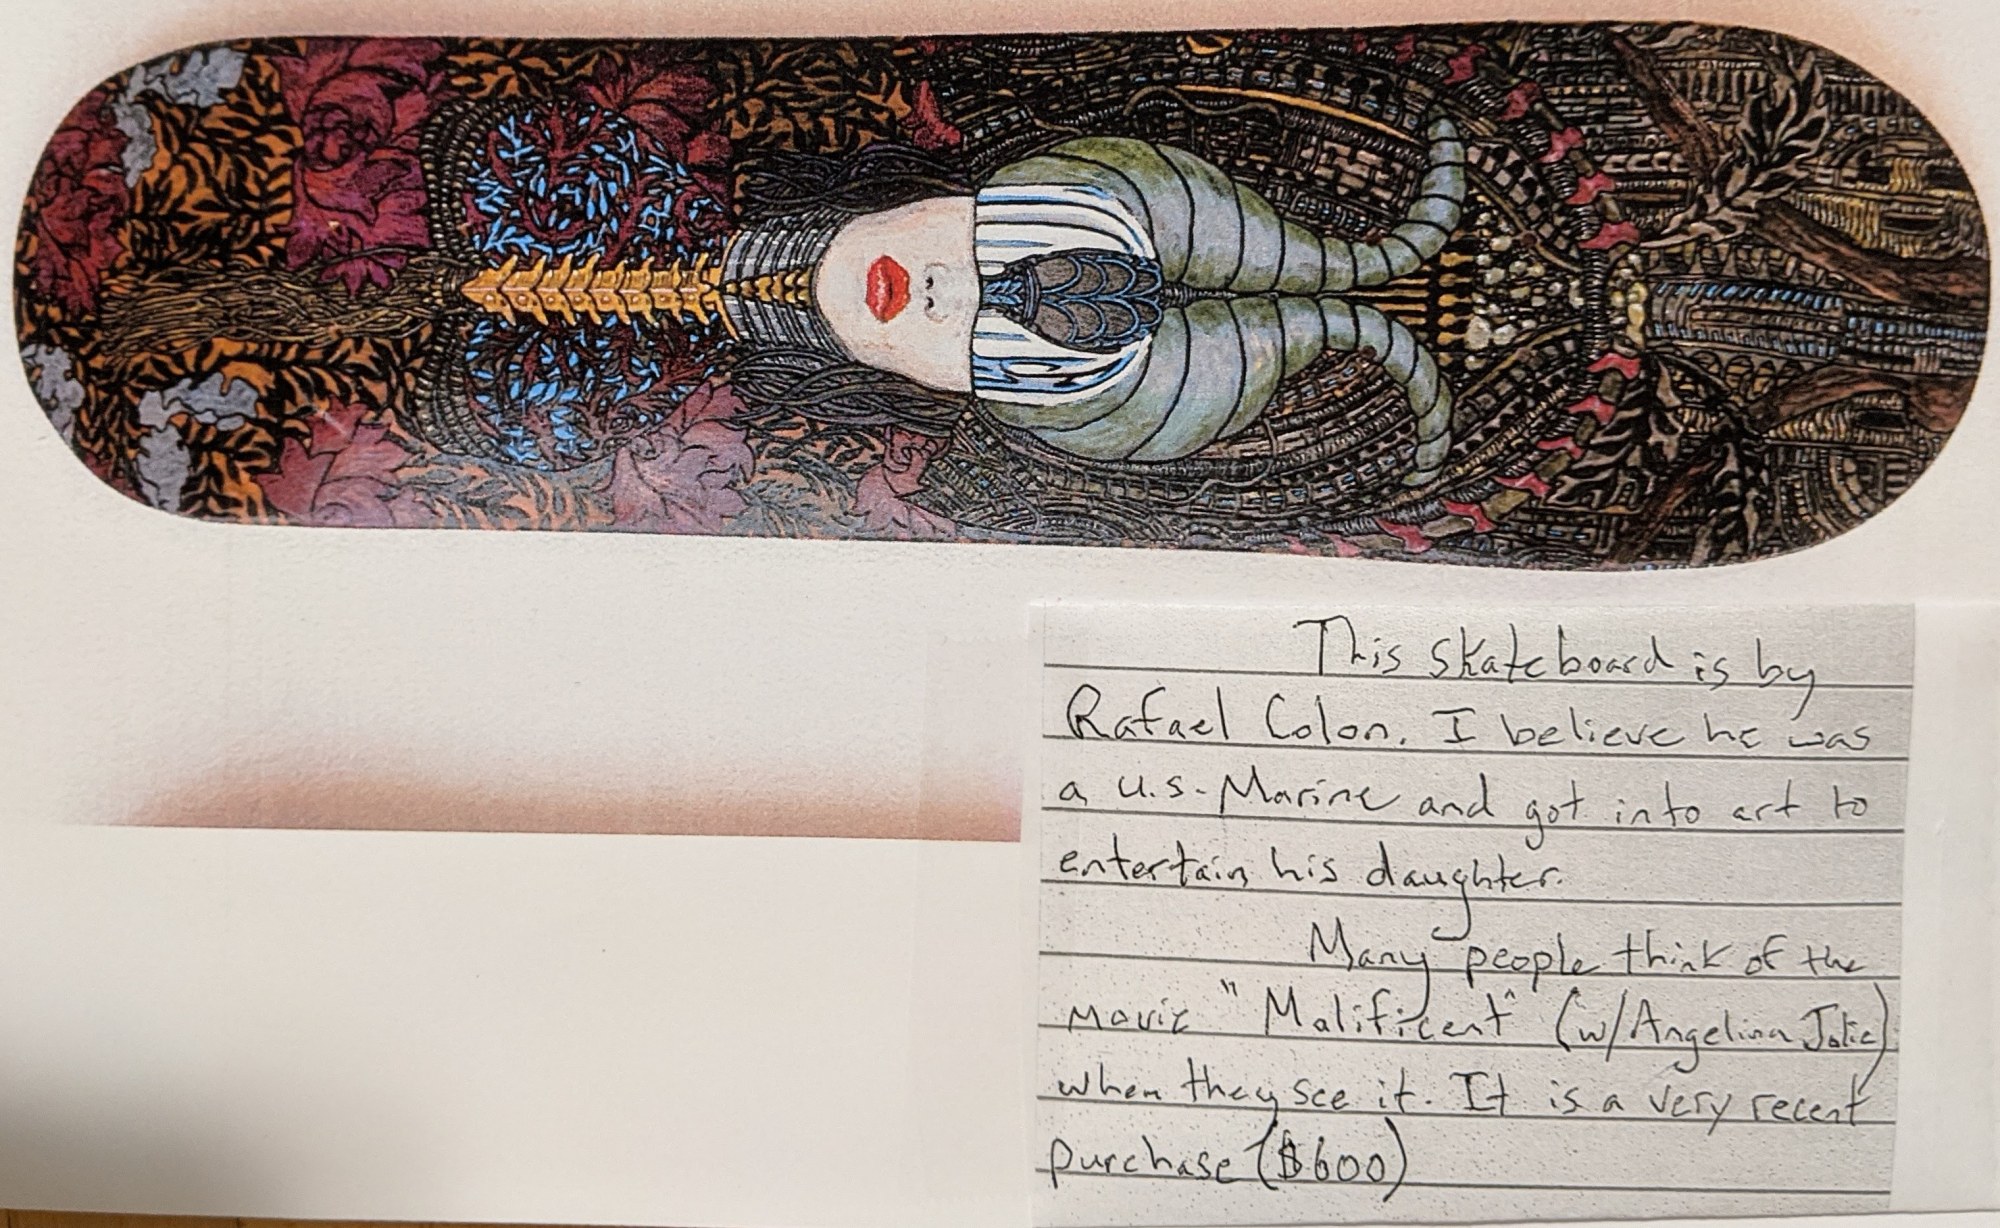 This skateboard is by
Rafael Colon. I believe he was
a U.S. Marine and got into art to
entertain his daughter.
Many people think of the
movie "Malificent" (w/Angelina Jolie)
when they see it. It is a very recent
purchase ($600)